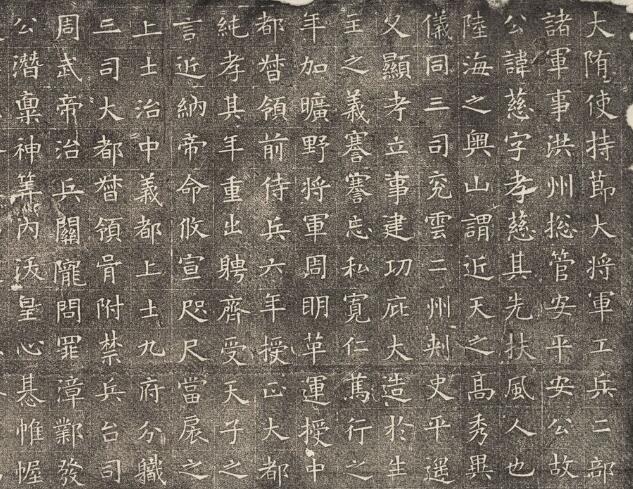 大隋使持節大將軍工兵二部
諸軍事洪州揔管安平安公故
公諱慈字孝慈其先扶風人也
陸海之奧山謂近天之高秀異
儀同三司兖雲二州刾史平遥
父顯孝立事建功庇大造於生
主之義謇謇忘私寬仁篤行之
年加曠野將軍周明革運授中
都督領前侍兵六年授正大都
純孝其年重出聘齊受天子之
言近納帝命攸宣咫尺當扆之
上士治中義都上士九府分職
三司大都督領胥附禁兵台司
周武帝治兵關隴問罪漳鄴發
公潛稟神筭內沃皇心惎帷幄